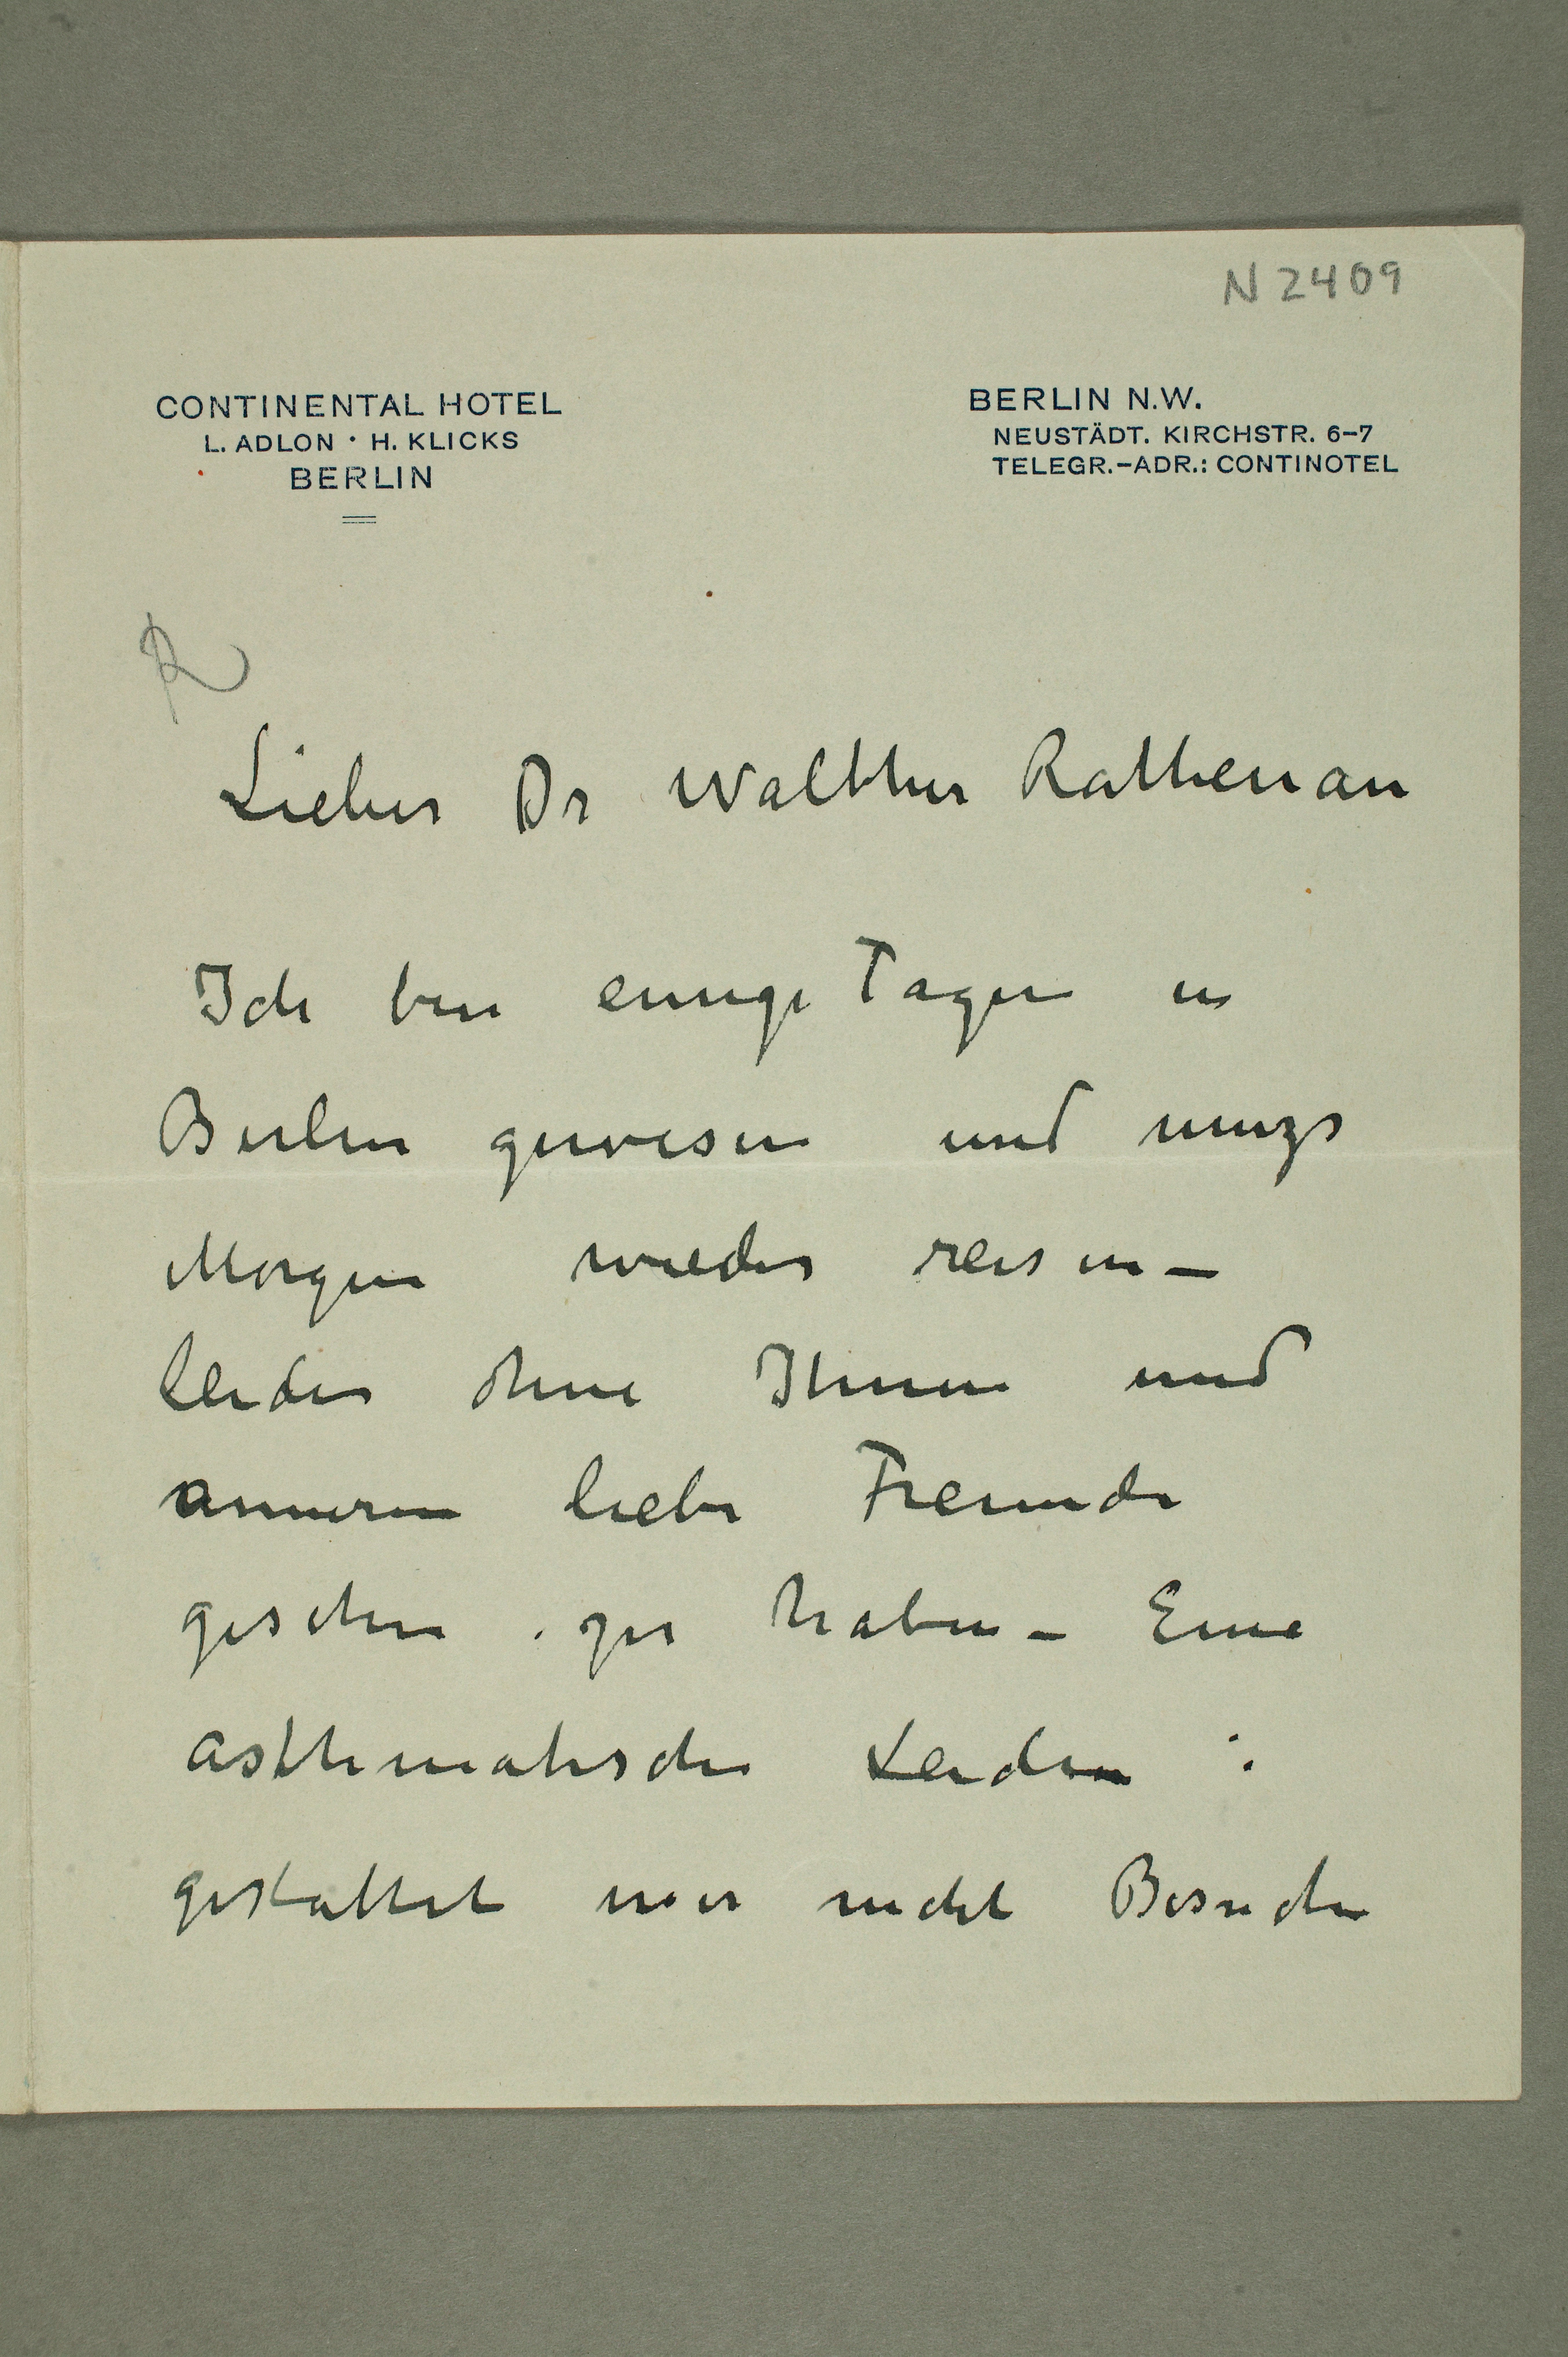 N 2409
CONTINENTAL HOTEL
L. ADLON · H. KLICKS
BERLIN
BERLIN N.W.
NEUSTÄDT. KIRCHSTR. 6-7
TELEGR.-ADR.: CONTINOTEL
R
Lieber Dr Walther Rathenau
Ich bin einige Tagen in
Berlin gewesen und muzs
Morgen wieder reisen –
leider ohne Ihnen und
liebe Freunde
gesehen zu haben – Eine
asthmatische Leiden
gestattet mir nicht Besuche